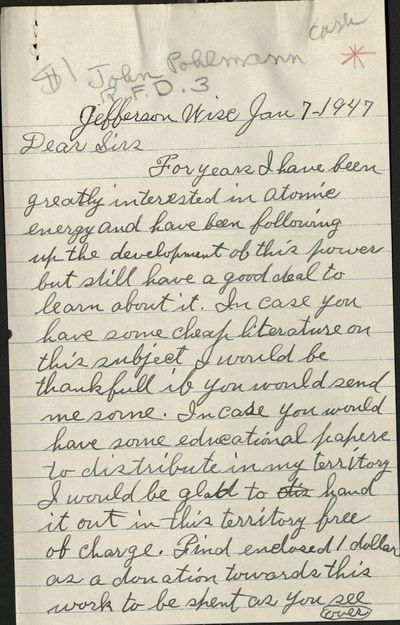 cash
$1 John Pohlmann
R.F.D. 3
Jefferson Wisc Jan 7-1947
Dear Sirs
For years I have been
greatly interested in atomic
energy and have been following
up the development of this power
but still have a good deal to
learn about it. In case you
have some cheap literature on
this subject I would be
thankfull if you would send
me some. In case you would
have some educational papers
to distribute in my territory
I would be glad to dis hand
it out in this territory free
of charge. Find enclosed 1 dollar
as a donation towards this
work to be spent as you see
over